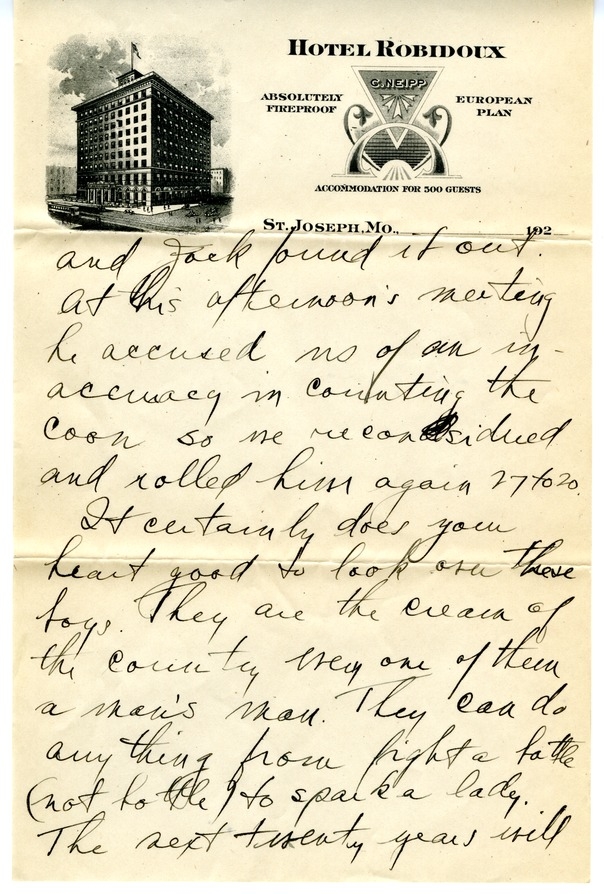 HOTEL ROBIDOUX
C. NEIPP
ABSOLUTELY FIREPROOF
EUROPEAN PLAN
ACCOMMODATION FOR 500 GUESTS
ST. JOSEPH, MO., 192
and Jack found it out.
At this afternoon's meeting
he accused us of an in-
accuracy in counting the
coon so we reconsidered
and rolled him again 27 to 20.
It certainly does your
heart good to look over these
boys. They are the cream of
the country every one of them
a man's man. They can do
anything from fight a battle
(not bottle) to spark a lady.
The next twenty years will